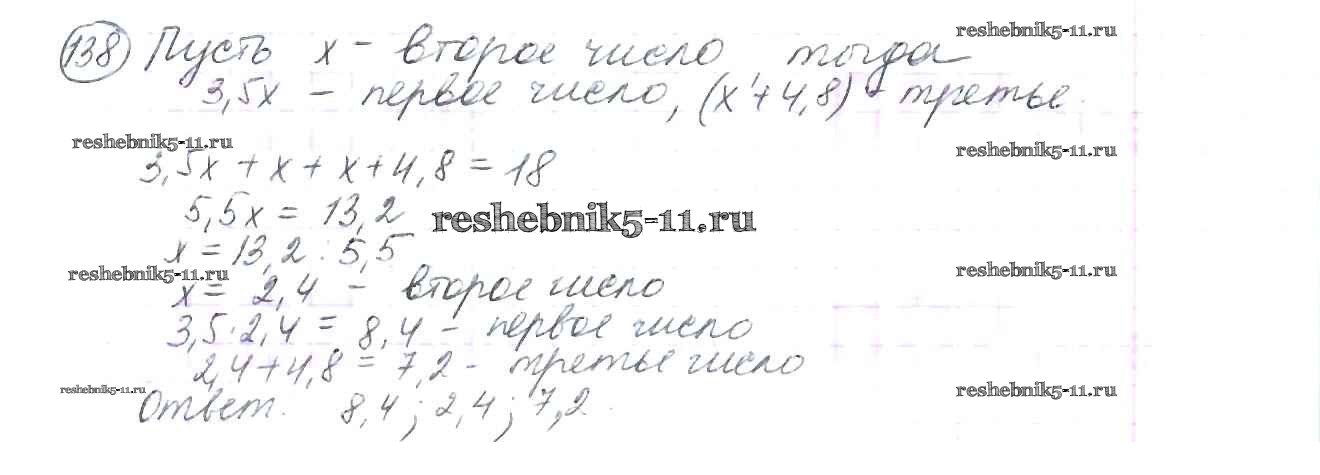 138 Пусть x - второе число тогда
reshebnik5-11.ru
3,5x - первое число, (x+4,8) - третье.
reshebnik5-11.ru
reshebnik5-11.ru
3,5x + x + x + 4,8 = 18
5,5x = 13,2
reshebnik5-11.ru
x = 13,2 : 5,5
reshebnik5-11.ru
reshebnik5-11.ru
x = 2,4 - второе число
3,5·2,4 = 8,4 - первое число
2,4+4,8 = 7,2 - третье число
reshebnik5-11.ru
reshebnik5-11.ru
Ответ. 8,4; 2,4; 7,2.